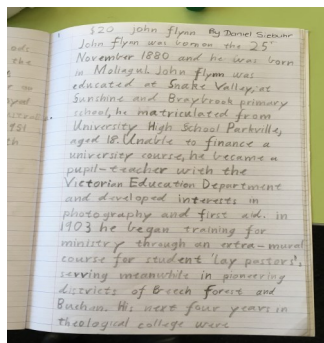 $20 john flynn By Daniel
John flynn was boroon the 25th
November 1880 and he was born
in Moliagul. John flynn was
educated at Snake Valley, at
Sunshine and Braybrook primary
school, he matriculated from
University High School Parkville,
aged 18. Unable to finance a
university course, he became a
pupil-teacher with the
Victorian Education Department
and developed interests in
photography and first aid. in
1903 he began training for
ministry through an extra-mural
course for student 'lay pastors',
serving meanwhile in pioneering
districts of Beech forest and
Buchan. His next four years in
theological college were
the